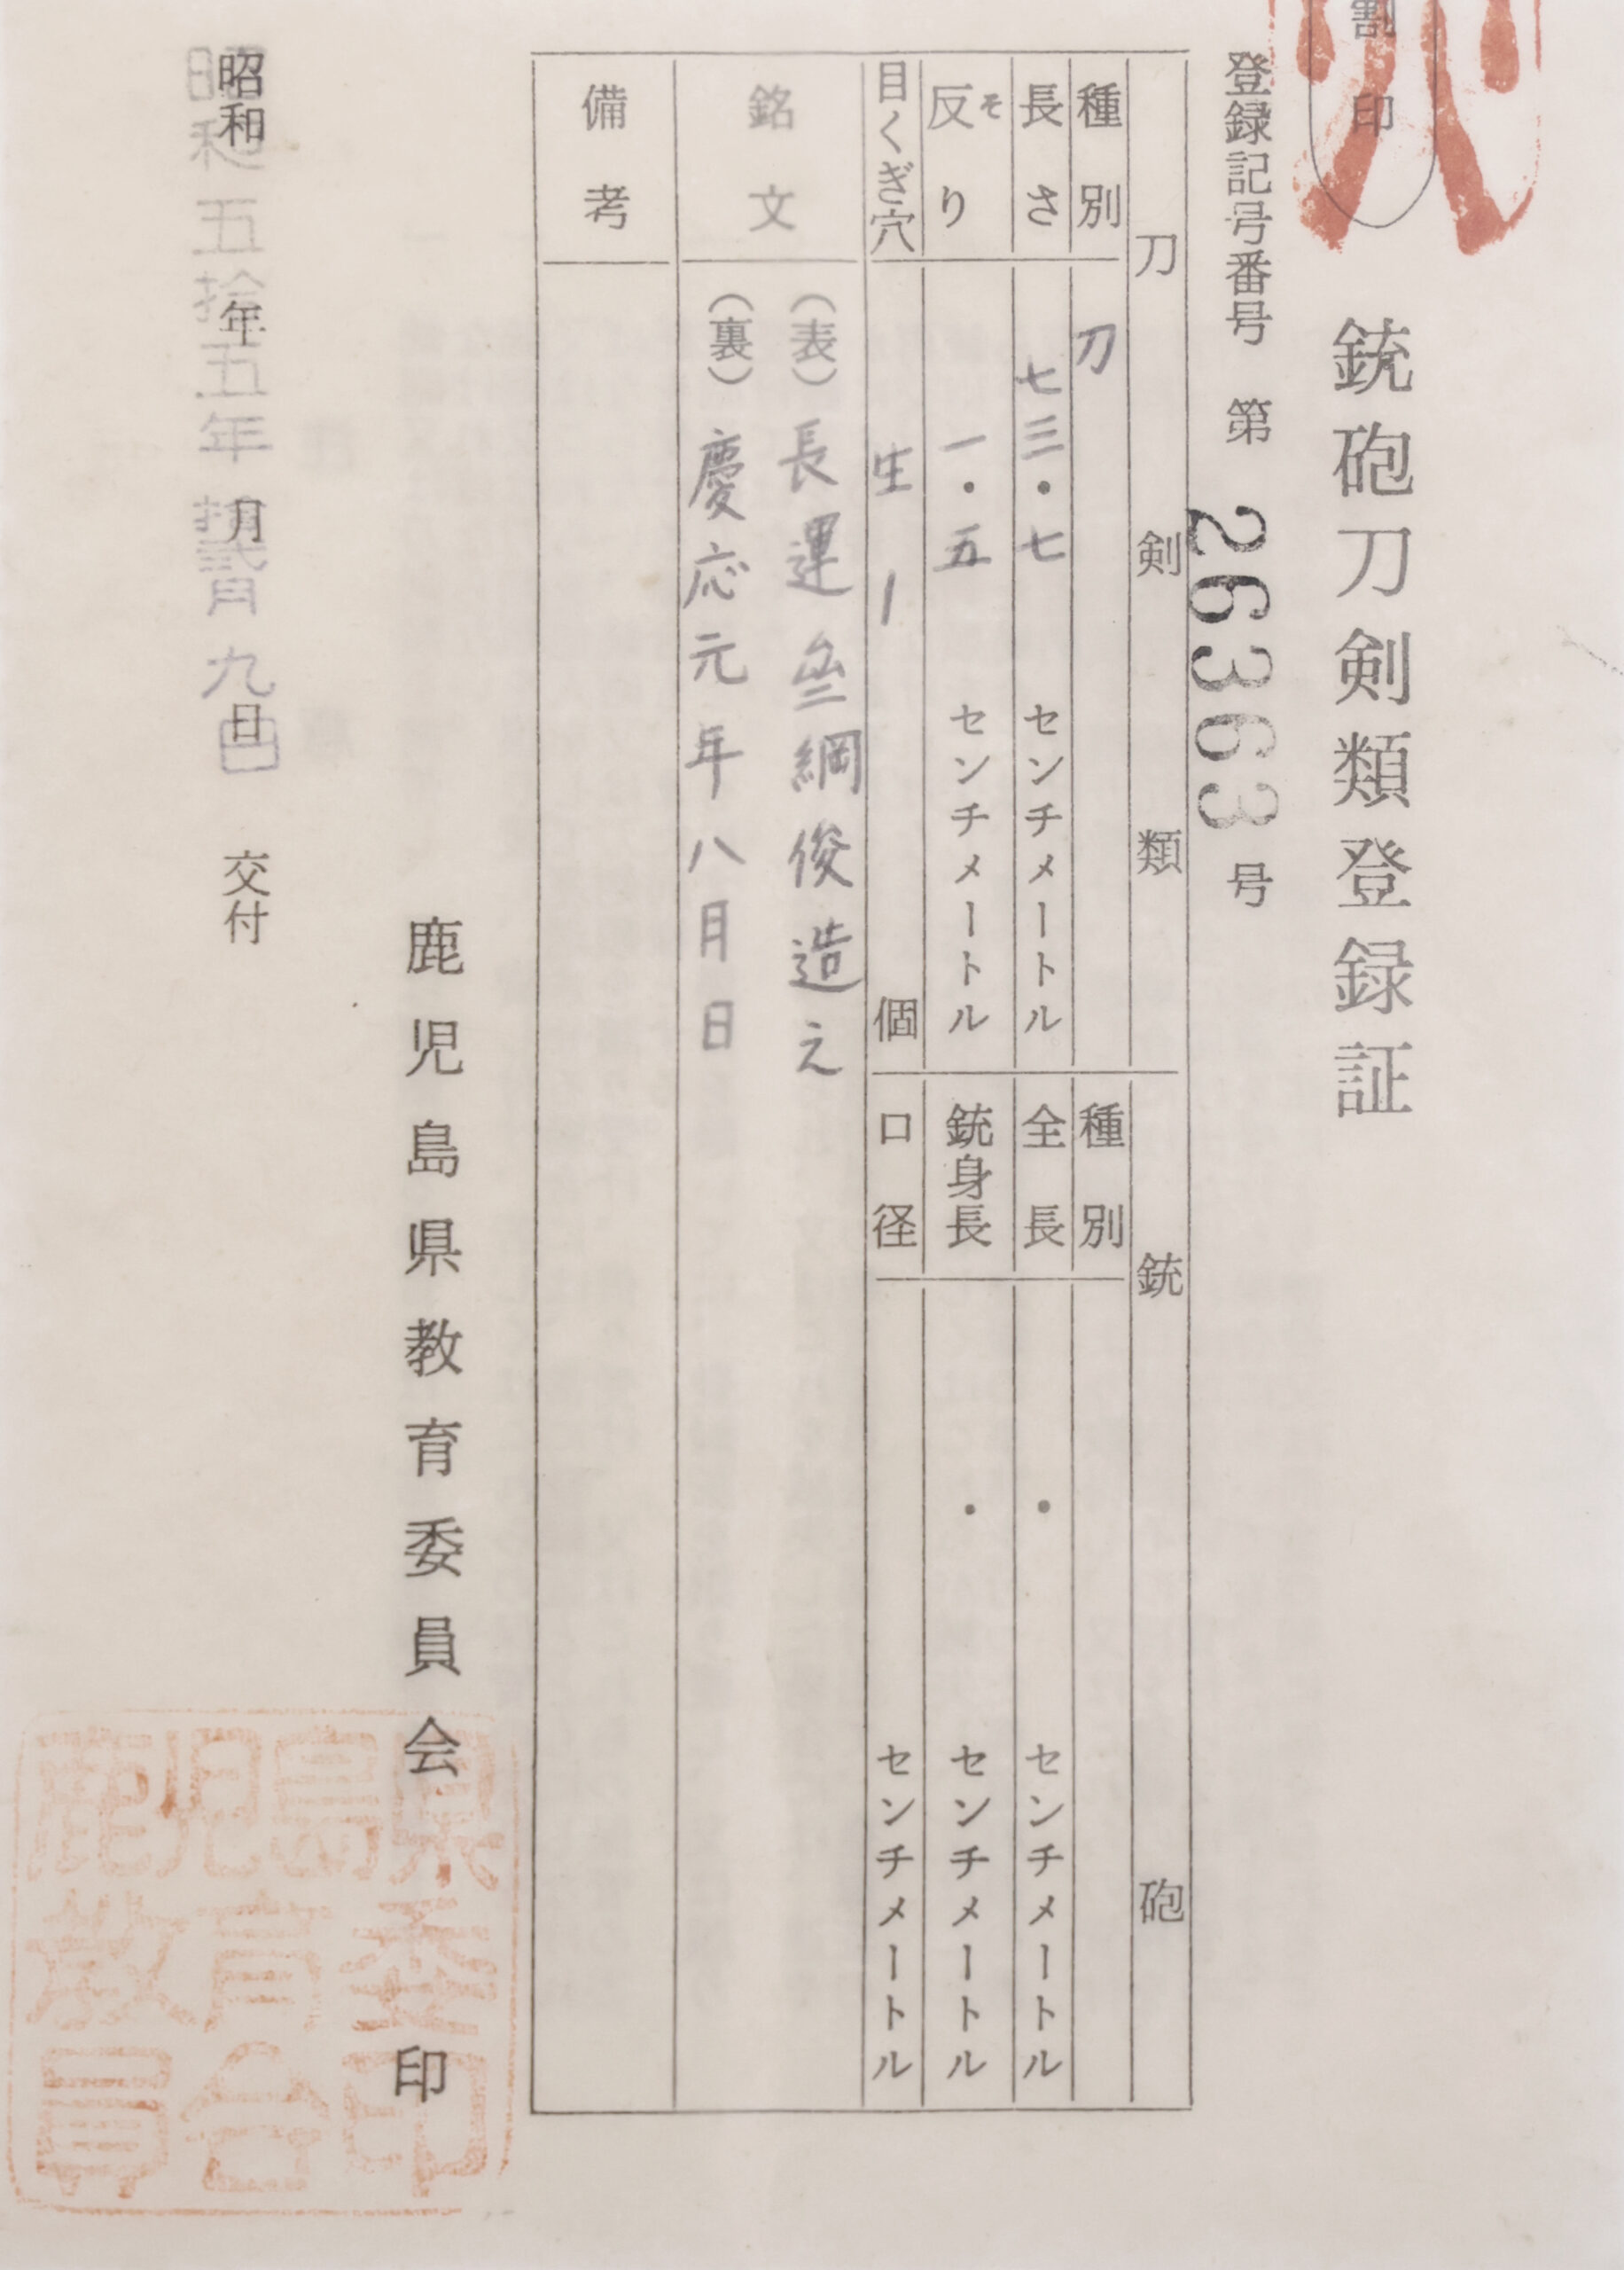 銃砲刀剣類登録証
割印
登録記号番号 第 26363 号
刀剣類
種別 刀
長さ 七三・七 センチメートル
反り 一・五 センチメートル
そ
目くぎ穴 生 1 個
銃砲
種別
全長 ・ センチメートル
銃身長 ・ センチメートル
口径 センチメートル
銘文
(表)長運斎綱俊造之
(裏)慶応元年八月日
備考
鹿児島県教育委員会 印
昭和 年 月 日 交付
昭和五拾五年拾弐月九日
鹿児島県
教育委
員会印